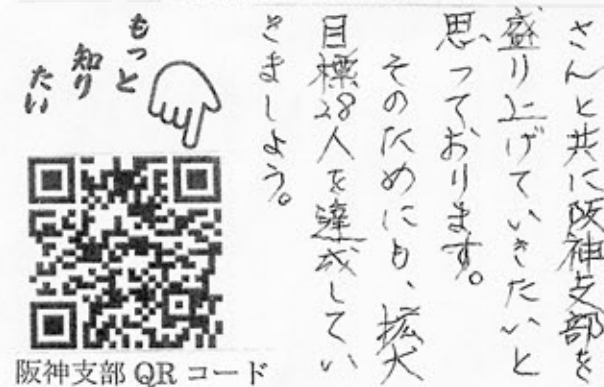 さんと共に阪神支部を
盛り上げていきたいと
思っております。
そのためにも、拡大
目標28人を達成してい
きましょう。
もっと
知り
たい
阪神支部 QR コード